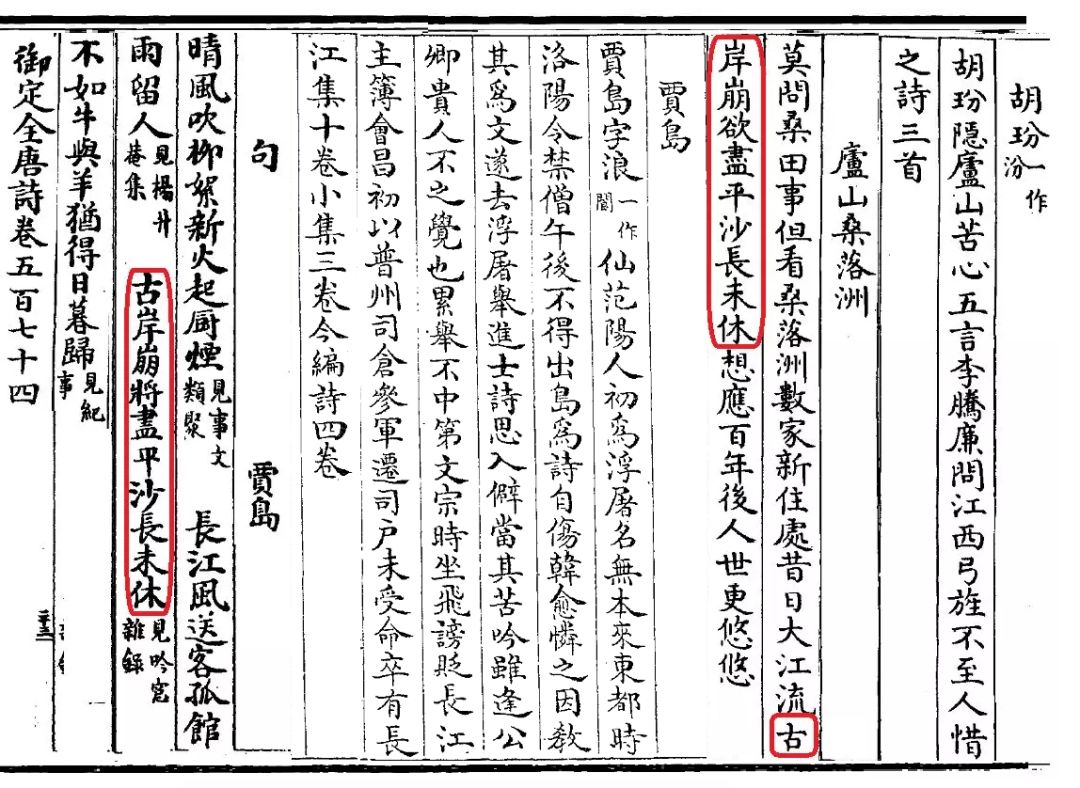 胡玢一作汾
胡玢隱廬山苦心五言李騰廉問江西弓旌不至人惜
之詩三首
廬山桑落洲
莫問桑田事但看桑落洲數家新住處昔日大江流古
岸崩欲盡平沙長未休想應百年後人世更悠悠
賈島
賈島字浪一作閬仙范陽人初爲浮屠名無本來東都時
洛陽令禁僧午後不得出島爲詩自傷韓愈憐之因教
其爲文遂去浮屠舉進士詩思入僻當其苦吟雖逢公
卿貴人不之覺也累舉不中第文宗時坐飛謗貶長江
主簿會昌初以普州司倉參軍遷司户未受命卒有長
江集十卷小集三卷今編詩四卷
句 賈島
晴風吹柳絮新火起厨煙見事文類聚 長江風送客孤館
雨留人見楊升菴集 古岸崩將盡平沙長未休見吟窗雜錄
不如牛與羊猶得日暮歸見紀事
御定全唐詩卷五百七十四